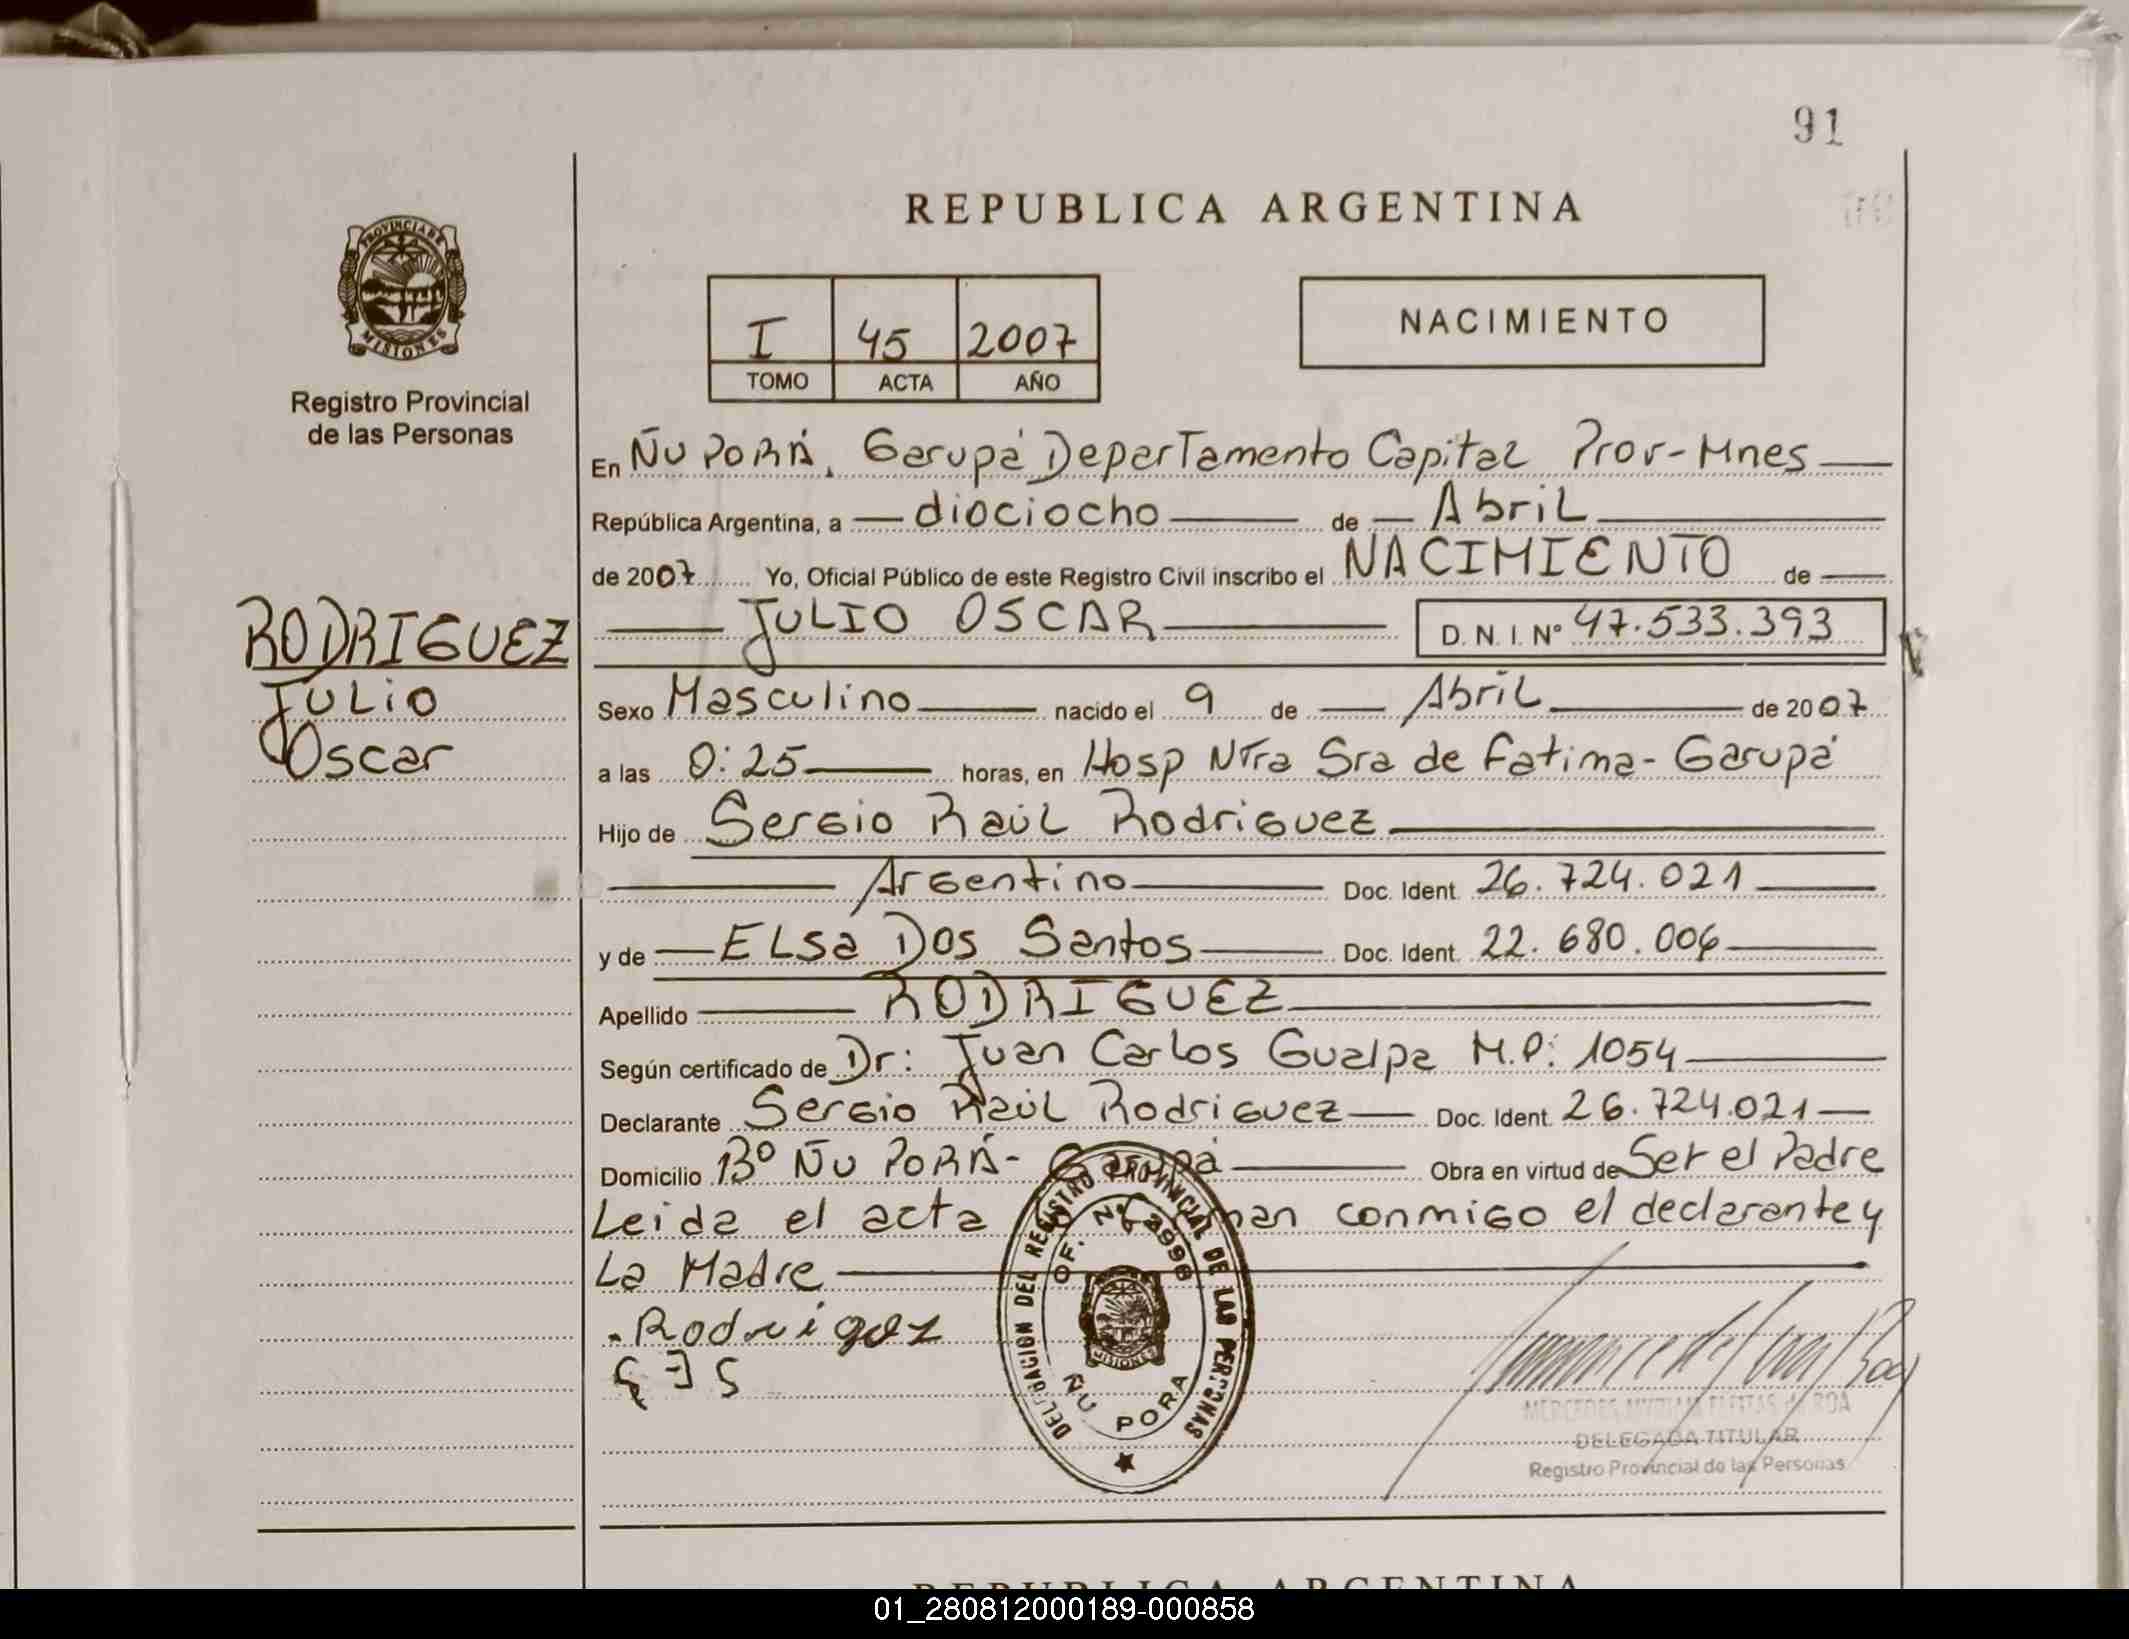 91
REPUBLICA ARGENTINA
PROVINCIA DE
MISIONES
Registro Provincial
de las Personas
I 45 2007
TOMO ACTA AÑO
NACIMIENTO
En Ñu PORÁ, Garupá Departamento Capital Prov-Mnes
República Argentina, a diociocho de Abril
de 2007 Yo, Oficial Público de este Registro Civil inscribo el NACIMIENTO de
JULIO OSCAR D. N. I. Nº 47.533.393
RODRIGUEZ
JULIO
Oscar
Sexo Masculino nacido el 9 de Abril de 2007
a las 0:25 horas, en Hosp Ntra Sra de Fatima- Garupá
Hijo de Sergio Raúl Rodriguez
Argentino Doc. Ident. 26.724.021
y de ELSa Dos Santos Doc. Ident. 22.680.006
Apellido RODRIGUEZ
Según certificado de Dr: Juan Carlos Gualpa M.P: 1054
Declarante Sergio Raúl Rodriguez Doc. Ident. 26.724.021
Domicilio Bº Ñu PORÁ- Garupá Obra en virtud de Ser el Padre
Leida el acta conmigo el declarante y
La Madre
Rodrigez
DELEGACION DEL REGISTRO PROVINCIAL DE LAS PERSONAS
OF. Nº 2998
MISIONES
ÑU PORA
DELEGADA TITULAR
Registro Provincial de las Personas
REPUBLICA ARGENTINA
01_280812000189-000858